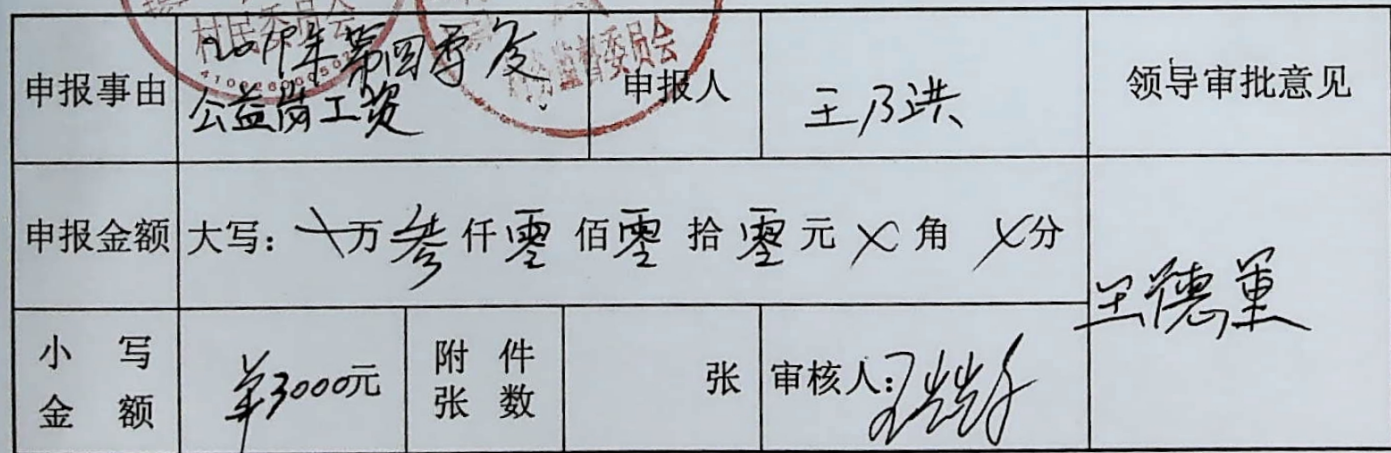 村民委员会
监督委员会
申报事由
年第四季度
公益岗工资
申报人
王乃洪
领导审批意见
申报金额
大写: 乂万叁仟零佰零拾零元乂角乂分
王德重
小写
金额
¥3000元
附件
张数
张
审核人: